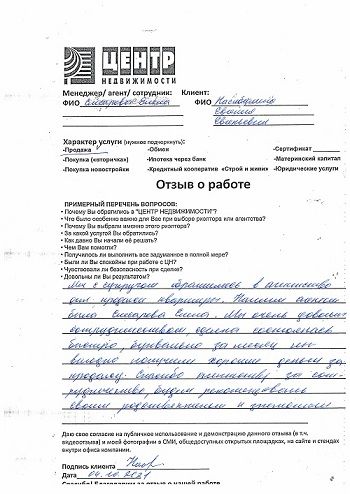 ЦЕНТР
НЕДВИЖИМОСТИ
Менеджер/ агент/ сотрудник: Клиент:
ФИО Елена ФИО
Евгения
Характер услуги (нужное подчеркнуть):
-Продажа -Обмен -Сертификат
-Покупка (вторичка) -Ипотека через банк -Материнский капитал
-Покупка новостройки -Кредитный кооператив «Строй и живи» -Юридические услуги
Отзыв о работе
ПРИМЕРНЫЙ ПЕРЕЧЕНЬ ВОПРОСОВ:
• Почему Вы обратились в "ЦЕНТР НЕДВИЖИМОСТИ"?
• Что было особенно важно для Вас при выборе риэлтора или агентства?
• Почему Вы выбрали именно этого риэлтора?
• За какой услугой Вы обратились?
• Как давно Вы начали её решать?
• Чем Вам помогли?
• Получилось ли выполнить все задуманное в полной мере?
• Были ли Вы спокойны при работе с ЦН?
• Чувствовали ли безопасность при сделке?
• Довольны ли Вы результатом?
Мы с супругом обратились в агентство
для продажи квартиры. Нашим агентом
была Елена. Мы очень довольны
сотрудничеством, сделка состоялась
быстро, буквально за месяц мы
выгодно получили хорошие деньги за
продажу. Спасибо агентству за сот-
рудничество, будем рекомендовать
своим родственникам и знакомым
Даю свое согласие на публичное использование и демонстрацию данного отзыва (в т.ч.
видеоотзыв) и моей фотографии в СМИ, общедоступных открытых площадках, на сайте и стендах
внутри офиса компании.
Подпись клиента
Дата 04.10.2021
Спасибо! Благодарим за отзыв о нашей работе